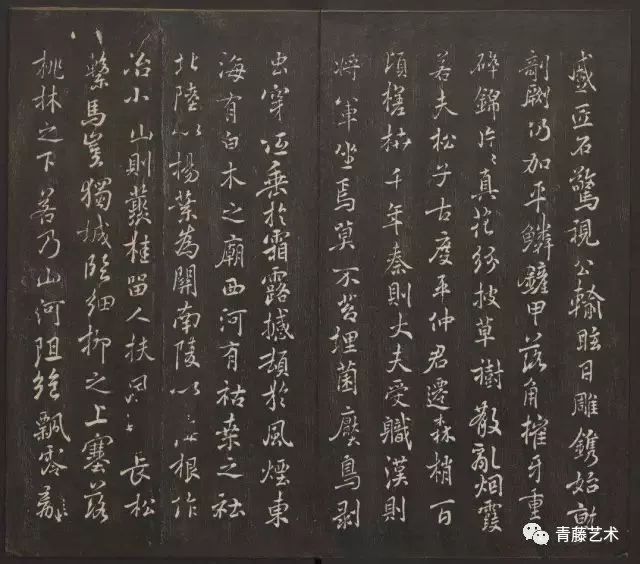 感匠石驚視公輸眩目雕鐫始就
剞劂仍加平鱗鏟甲落角摧牙重
碎錦片〻真花紛披草樹散亂烟霞
若夫松子古度平仲君遷森梢百
頃槎枿千年秦則大夫受職漢則
將軍坐焉莫不苔埋菌壓鳥剥
虫穿低垂於霜露撼頓於風煙東
海有白木之廟西河有枯桑之社
北陸以楊葉為關南陵以根作
冶小山則叢桂留人扶長松
八
繫馬豈獨城臨細柳之上塞落
桃林之下若乃山河阻絕飄零離
青藤艺术